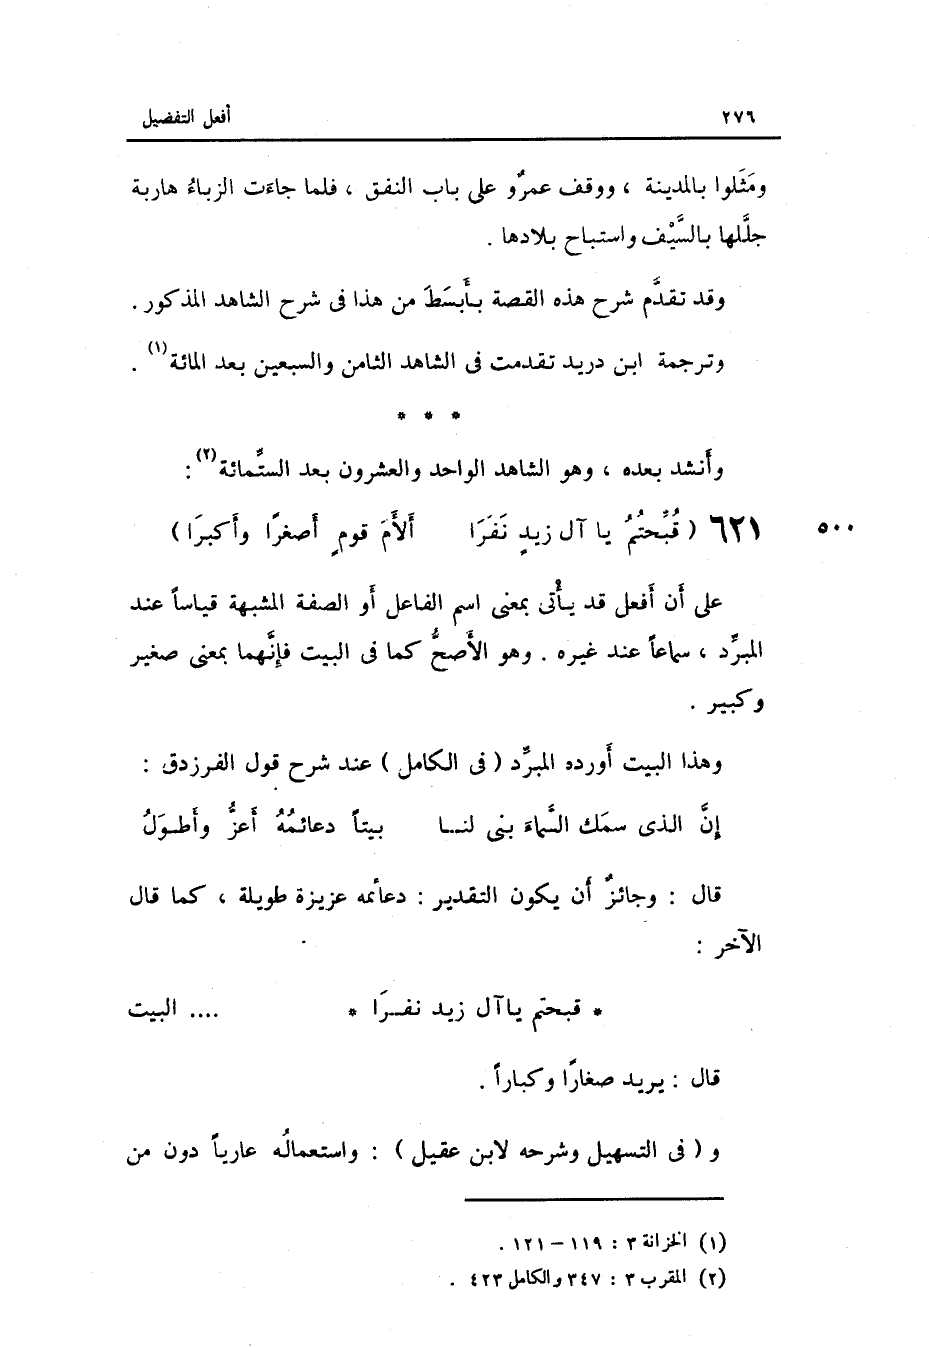 ٢٧٦ أفعل التفضيل
ومَثَلوا بالمدينة ، ووقف عمرٌو على باب النفق ، فلما جاءَت الزباءُ هاربة
جلَّلها بالسَّيْف واستباح بلادها .
وقد تقدَّم شرح هذه القصة بأَبسَطَ من هذا فى شرح الشاهد المذكور .
وترجمة ابن دريد تقدمت فى الشاهد الثامن والسبعين بعد المائة(١) .
* * *
وأَنشد بعده ، وهو الشاهد الواحد والعشرون بعد الستِّمائة(٢) :
٥٠٠ ٦٢١ ( قُبِّحتُمُ يا آل زيدٍ نَفَرَا أَلأَمَ قومٍ أَصغرًا وأَكبرَا )
على أَن أَفعل قد يأْتى بمعنى اسم الفاعل أَو الصفة المشبهة قياساً عند
المبرِّد ، سماعاً عند غيره . وهو الأَصحُّ كما فى البيت فإِنَّهما بمعنى صغير
وكبير .
وهذا البيت أَورده المبرِّد ( فى الكامل ) عند شرح قول الفرزدق :
إِنَّ الذى سمَك السَّماءَ بنى لنـا بيتاً دعائمُهُ أَعزُّ وأَطـولُ
قال : وجائزٌ أَن يكون التقدير : دعائمه عزيزة طويلة ، كما قال
الآخر :
* قبحتم ياآل زيد نفـرَا * .... البيت
قال : يريد صغارًا وكباراً .
و ( فى التسهيل وشرحه لابن عقيل ) : واستعمالُه عارياً دون من
(١) الخزانة ٣ : ١١٩ – ١٢١ .
(٢) المقرب ٣ : ٣٤٧ والكامل ٤٢٣ .